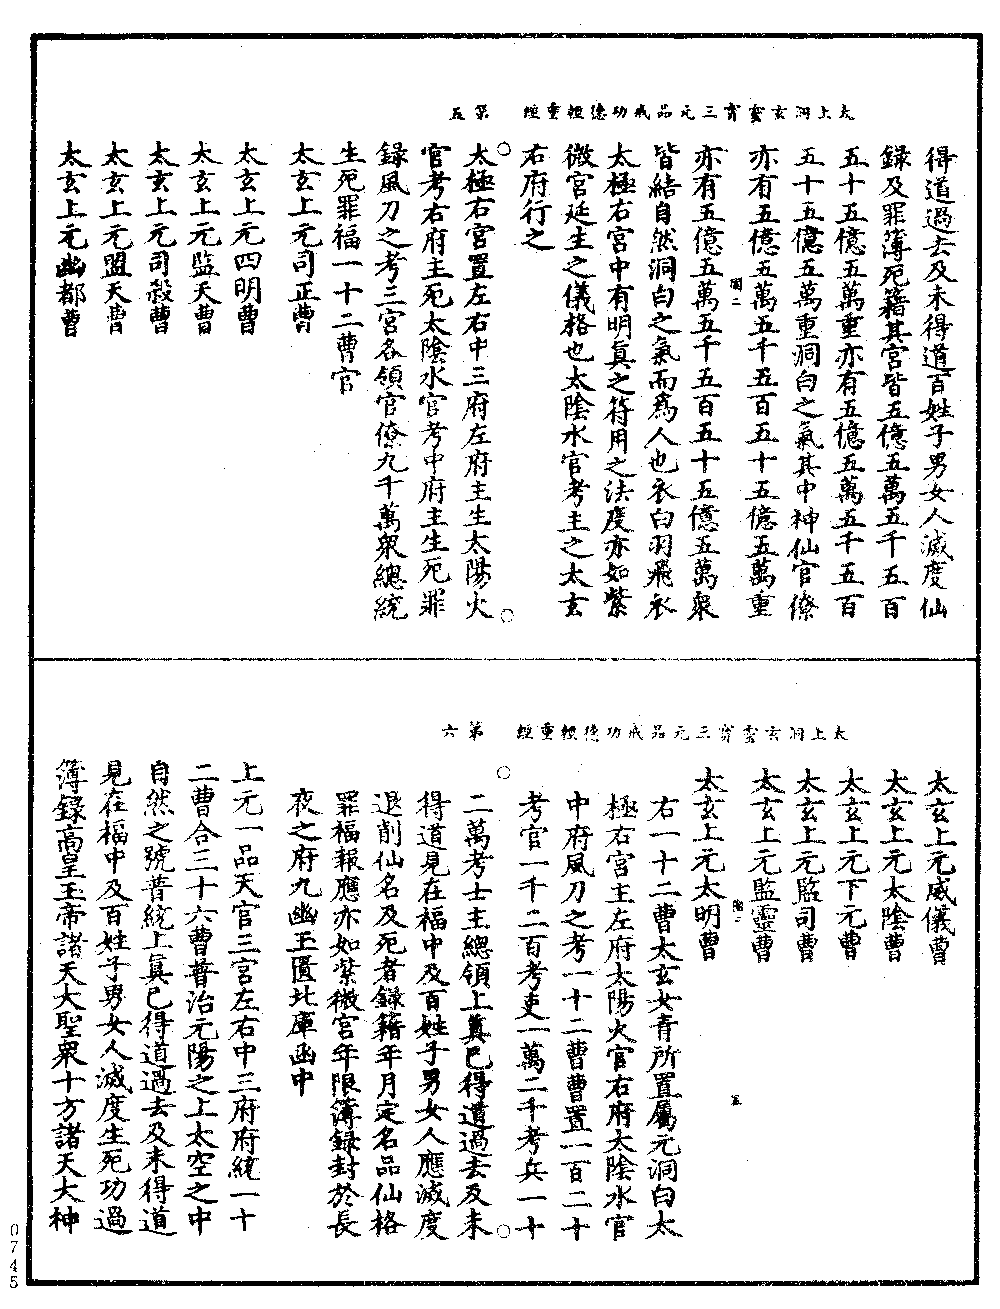 太上洞玄靈寶三元品戒功德輕重經　第五
得道過去及未得道百姓子男女人滅度仙
錄及罪簿死籍其宮皆五億五萬五千五百
五十五億五萬重亦有五億五萬五千五百
五十五億五萬重洞白之氣其中神仙官僚
亦有五億五萬五千五百五十五億五萬重
亦有五億五萬五千五百五十五億五萬衆
皆結自然洞白之氣而爲人也衣白羽飛衣
太極右宮中有明真之符用之法度亦如紫
微宮延生之儀格也太陰水官考主之太玄
右府行之
太極右宮置左右中三府左府主生太陽火
官考右府主死太陰水官考中府主生死罪
錄風刀之考三宮各領官僚九千萬衆總統
生死罪福一十二曹官
太玄上元司正曹
太玄上元四明曹
太玄上元監天曹
太玄上元司殺曹
太玄上元盟天曹
太玄上元幽都曹
太上洞玄靈寶三元品戒功德輕重經　第六
太玄上元威儀曹
太玄上元太陰曹
太玄上元下元曹
太玄上元監司曹
太玄上元監靈曹
太玄上元太明曹
右一十二曹太玄女青所置屬元洞白太
極右宮主左府太陽火官右府太陰水官
中府風刀之考一十二曹曹置一百二十
考官一千二百考吏一萬二千考兵一十
二萬考士主總領上真已得道過去及未
得道見在福中及百姓子男女人應滅度
退削仙名及死者錄籍年月定名品仙格
罪福報應亦如紫微宮年限簿錄封於長
夜之府九幽玉匱北庫函中
上元一品天官三宮左右中三府府統一十
二曹合三十六曹普治元陽之上太空之中
自然之號普統上真已得道過去及未得道
見在福中及百姓子男女人滅度生死功過
簿錄高皇玉帝諸天大聖衆十方諸天大神
0745